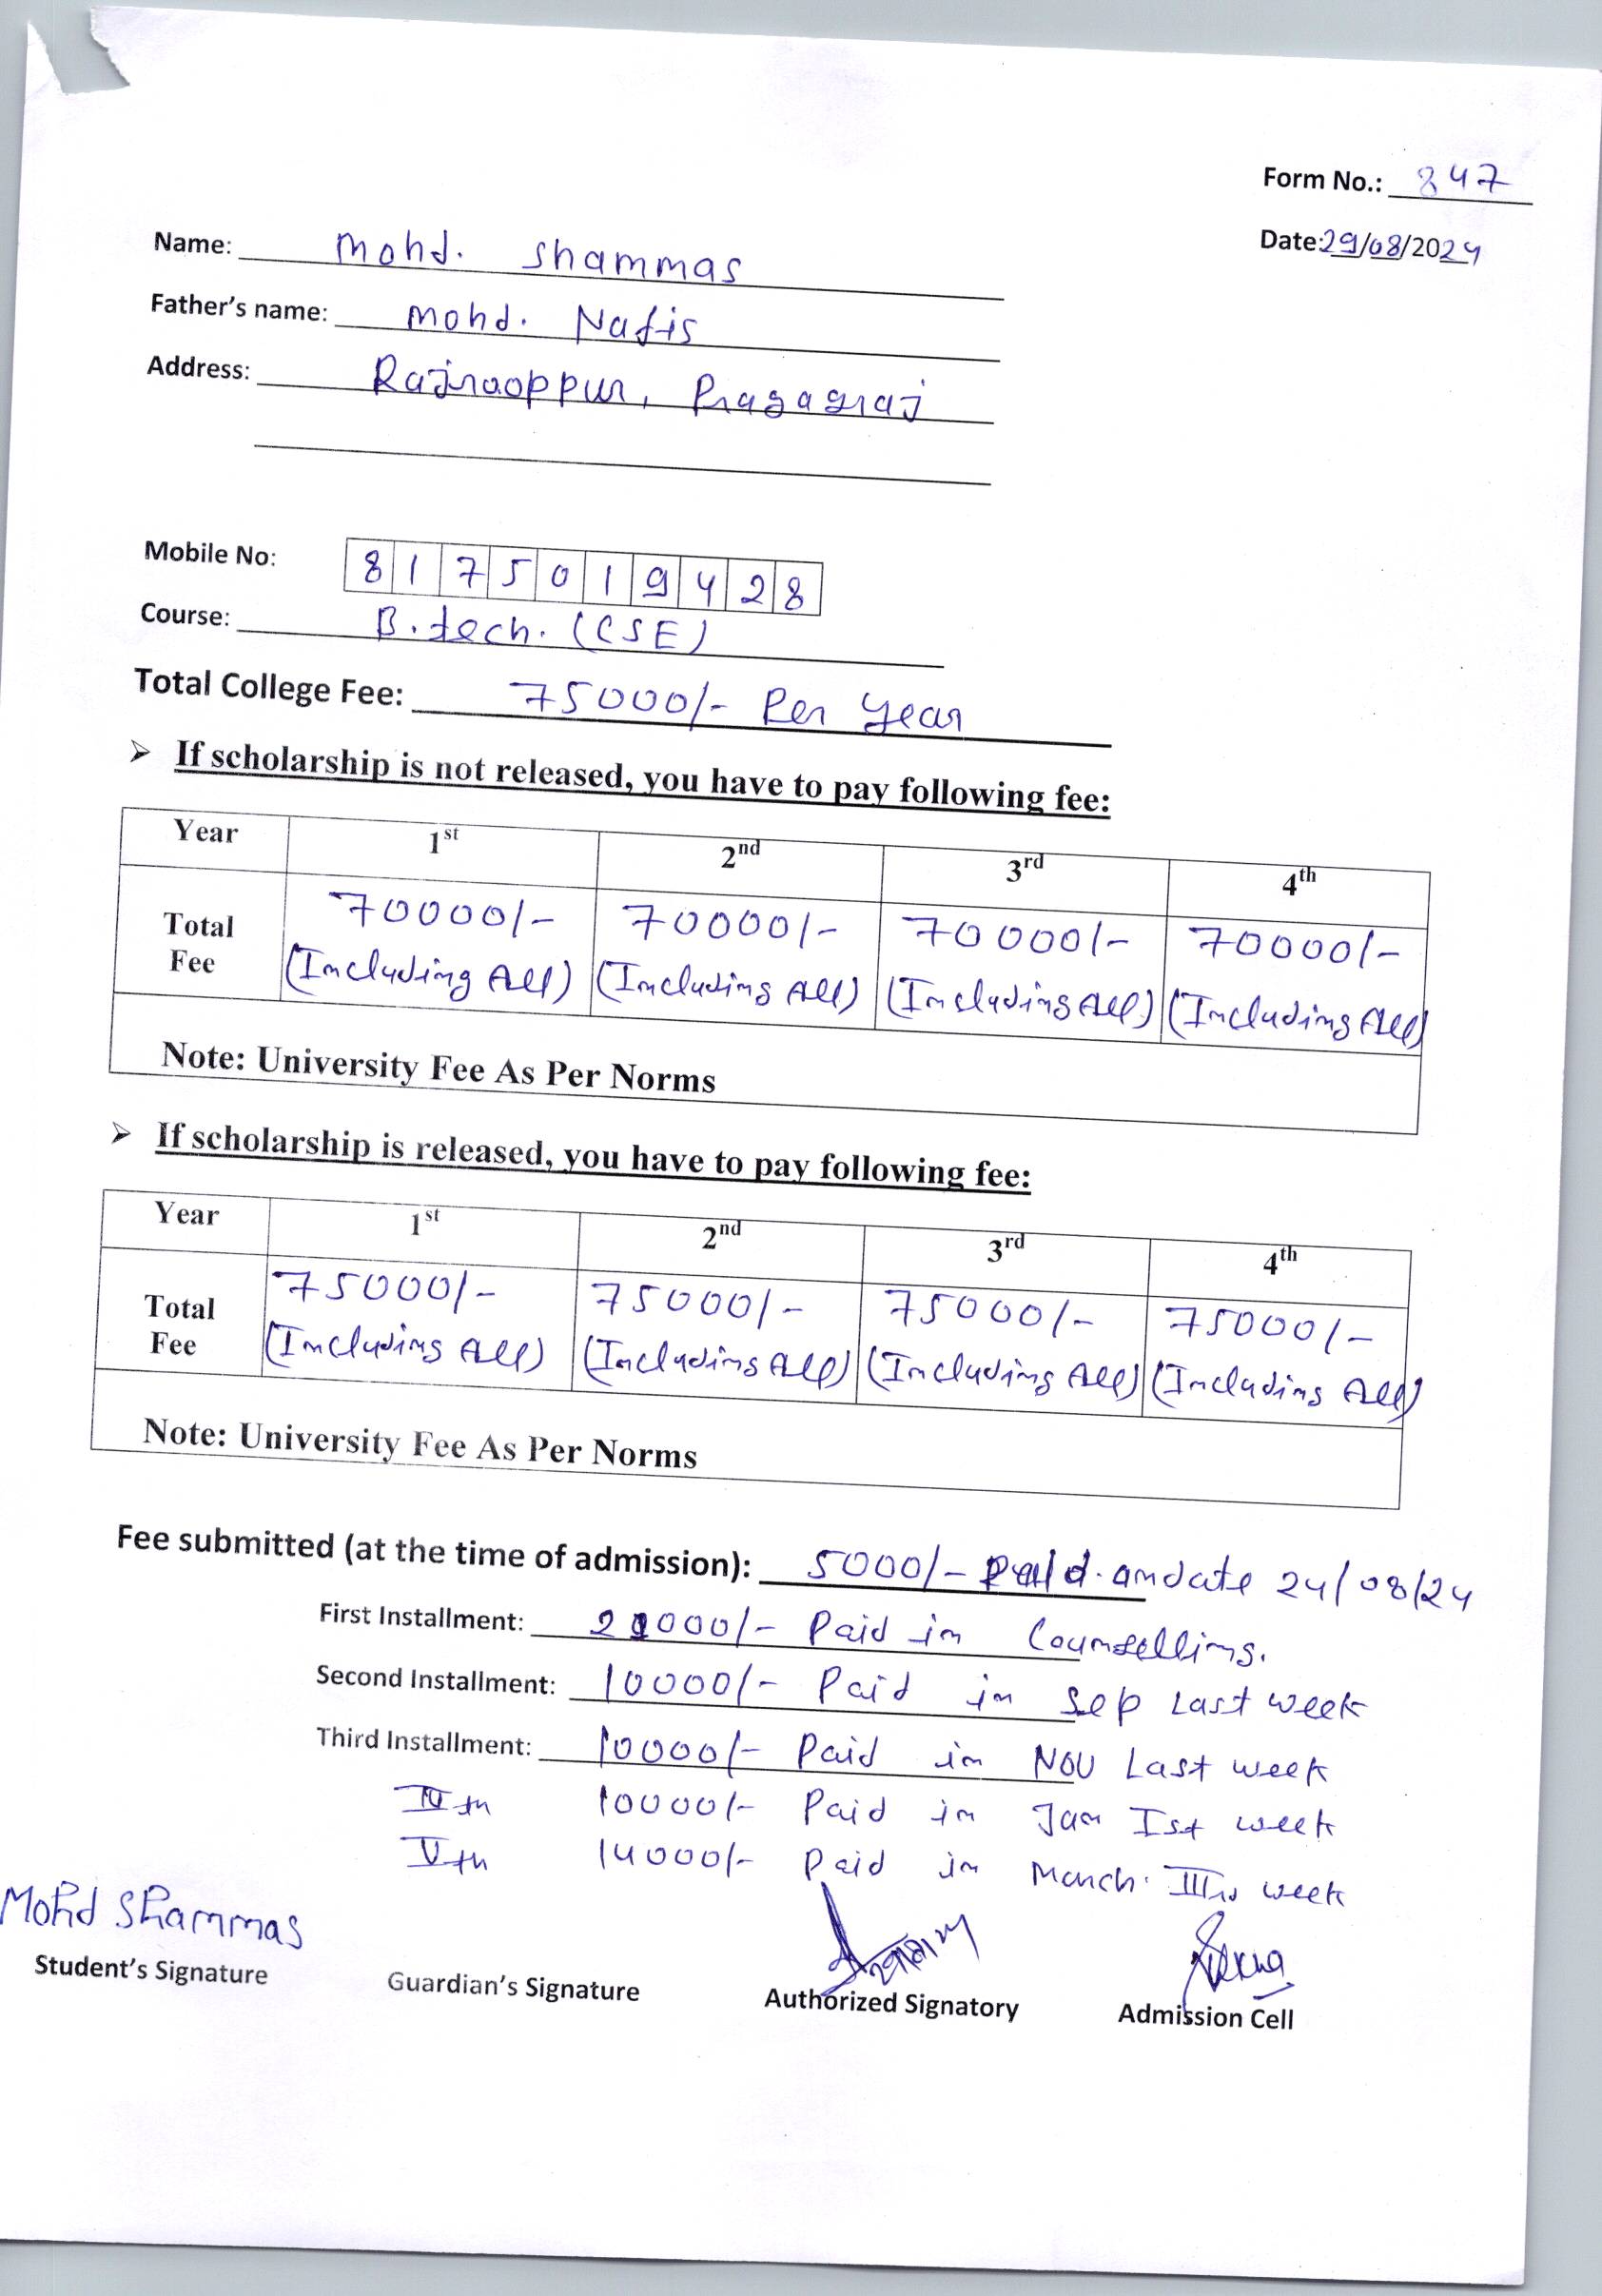 Form No.: 847
Date:29/08/2024
Name: Mohd. Shammas
Father's name: Mohd. Nafis
Address: Rajrooppur, Pragagraj
Mobile No: 8175019428
Course: B.tech. (CSE)
Total College Fee: 75000/- Per Year
➢ If scholarship is not released, you have to pay following fee:
Year 1st 2nd 3rd 4th
70000/- 70000/- 70000/- 70000/-
Total Fee (Including All) (Including All) (Including All) (Including All)
Note: University Fee As Per Norms
➢ If scholarship is released, you have to pay following fee:
Year 1st 2nd 3rd 4th
75000/- 75000/- 75000/- 75000/-
Total Fee (Including All) (Including All) (Including All) (Including All)
Note: University Fee As Per Norms
Fee submitted (at the time of admission): 5000/- Paid. andate 24/08/24
First Installment: Paid in Counselling.
Second Installment: 10000/- Paid in Sep Last week
Third Installment: 10000/- Paid in NOV Last week
IVth 10000/- Paid in Jan Ist week
Vth 14000/- Paid in March. week
Mohd Shammas
Student's Signature Guardian's Signature Authorized Signatory Admission Cell